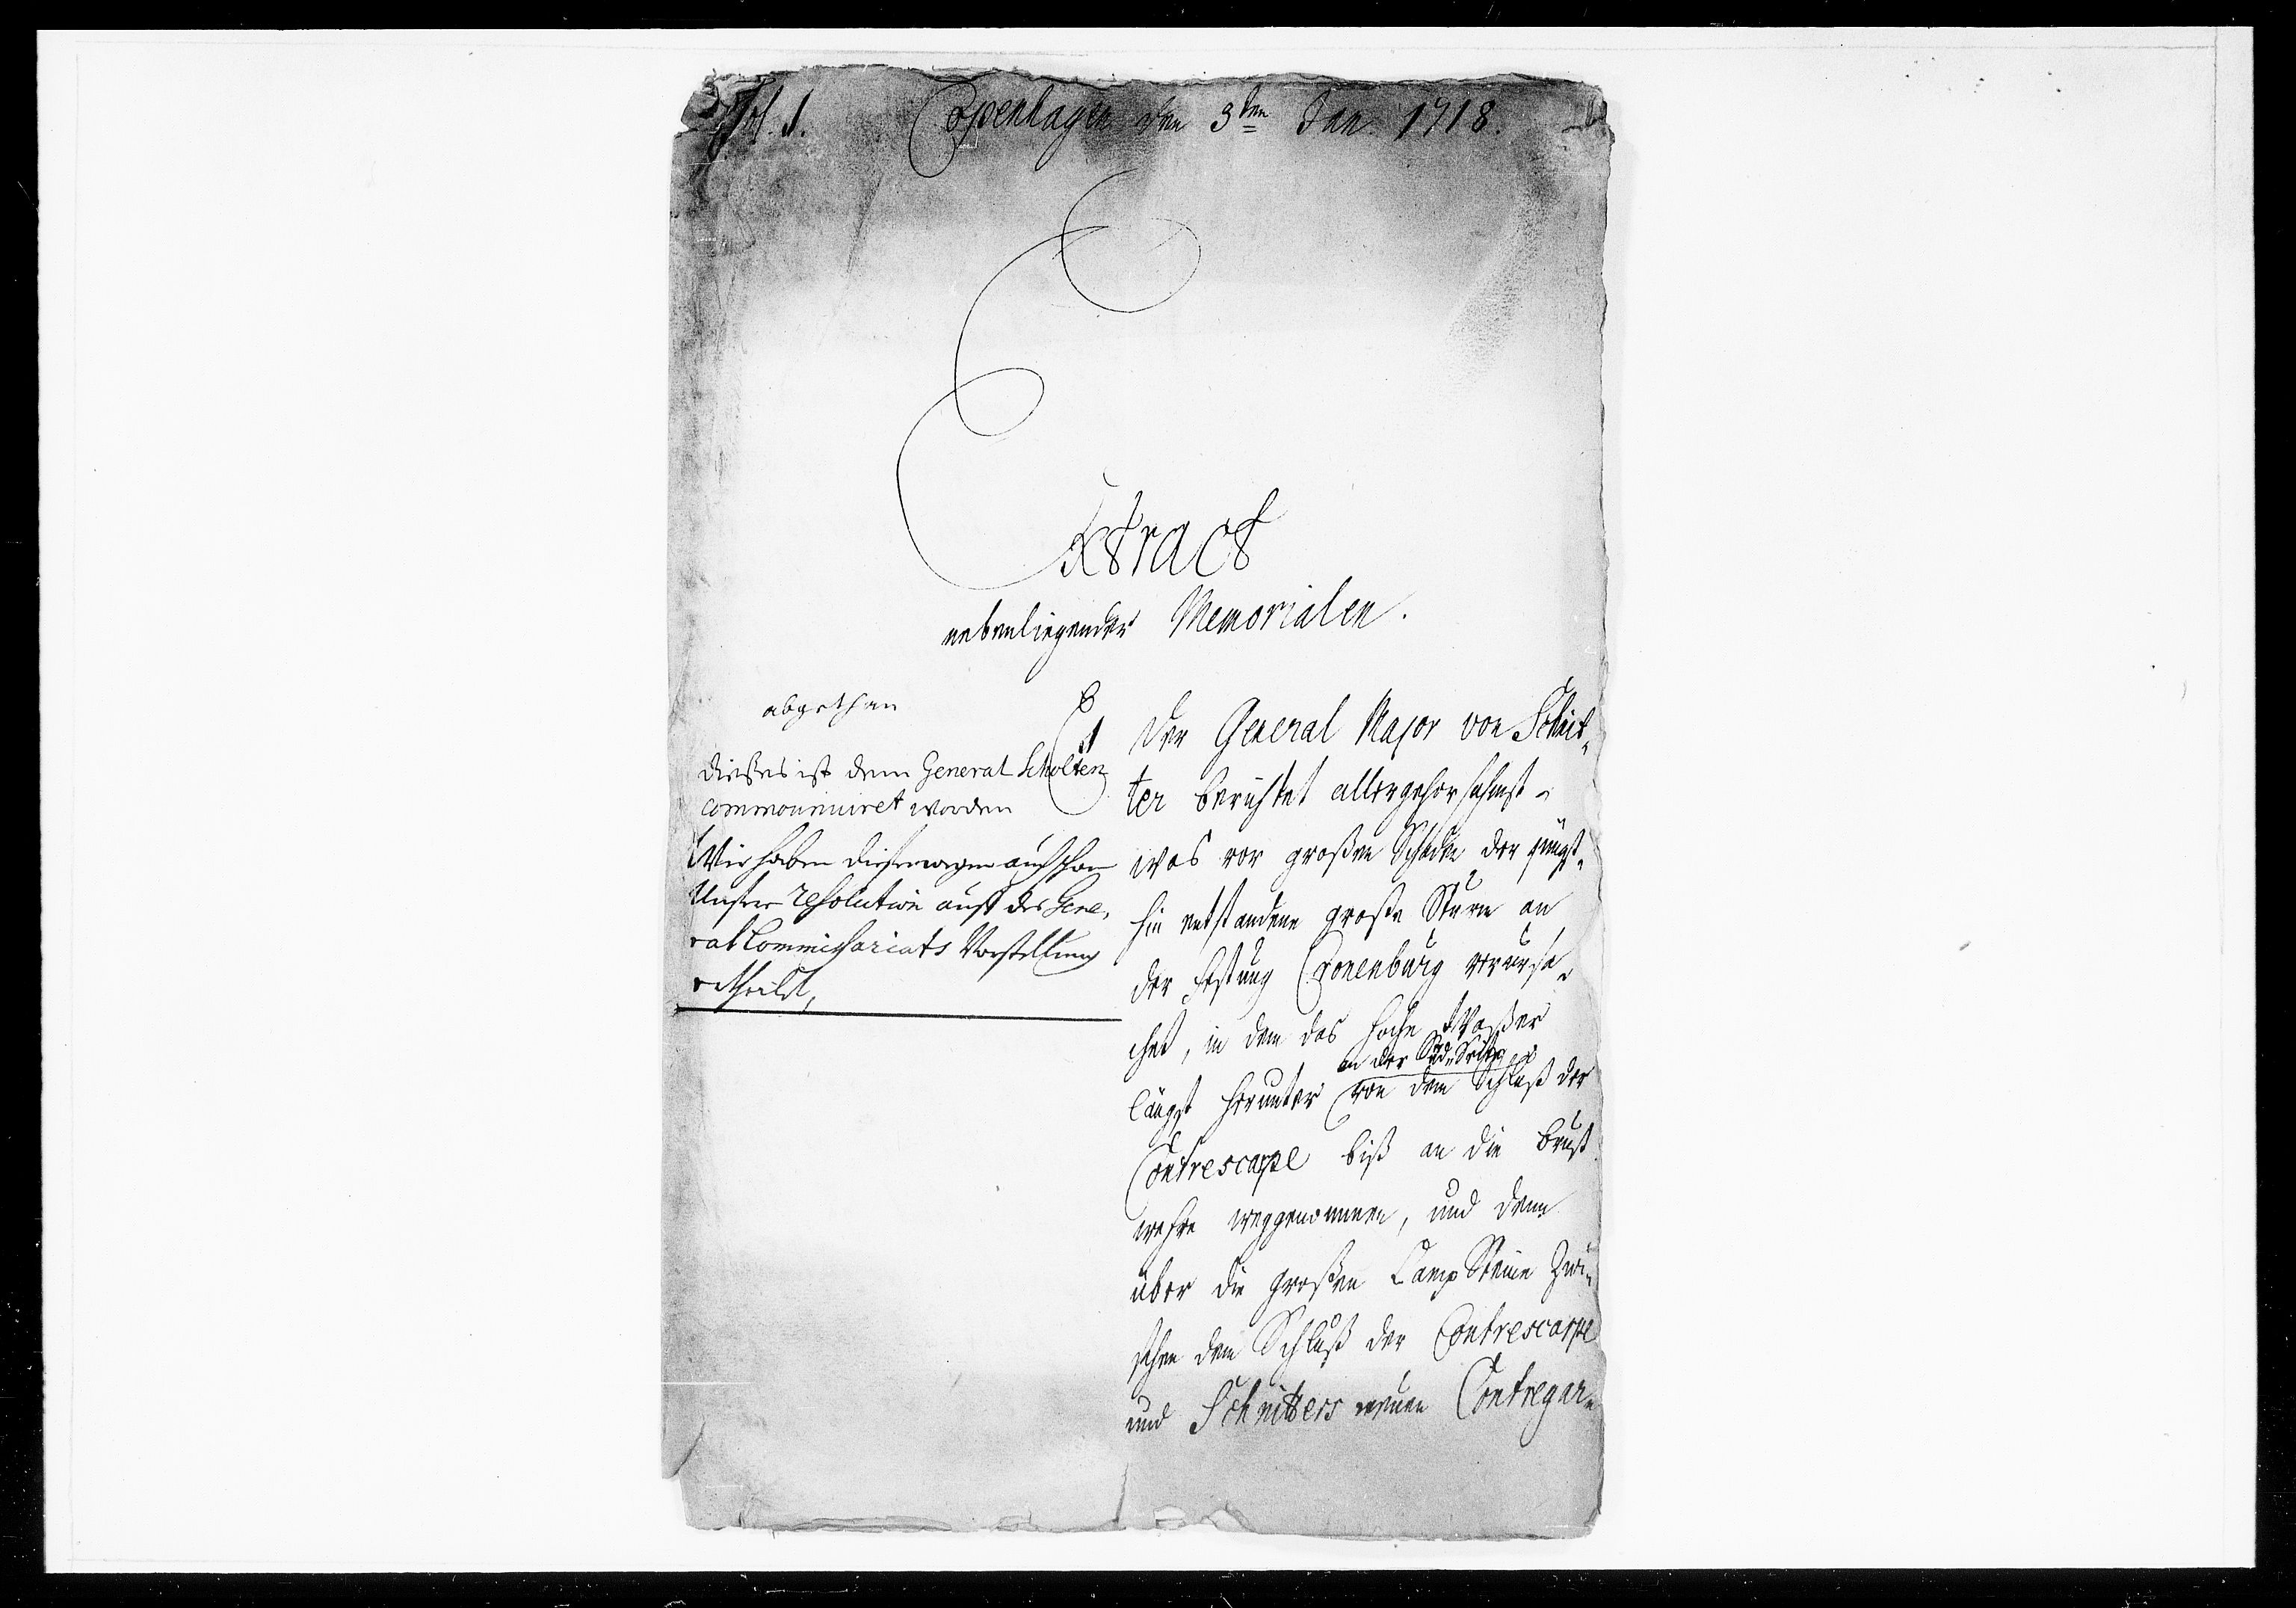 Fol. 1.
Copenhagen den 3ten Jan. 1718.
Extract
nebenliegender Memorialen.
abgethan
dießes ist dem General Scholten
communiciret worden
Wir haben diesserwegen auch schon
Unsere resolution auff des Gene,
ral Commissariats Vorstellung
ertheilet,
1
Der General Major von Schnit-
ter berichtet allergehorsahmst
was vor großen Schaden der jüngst-
hin entstandene große Sturm an
der Festung Cronenburg verursa-
chet, in dem das hohe Waßer
an der Süd-Seite
längst herunter von dem Schluß der
Contrescarpe biß an die Brust
wehre weggenommen, und denn
über die großen Camp Steine Zwi-
schen dem Schluß der Contrescarpe
und Schnitters neuen Contregar-